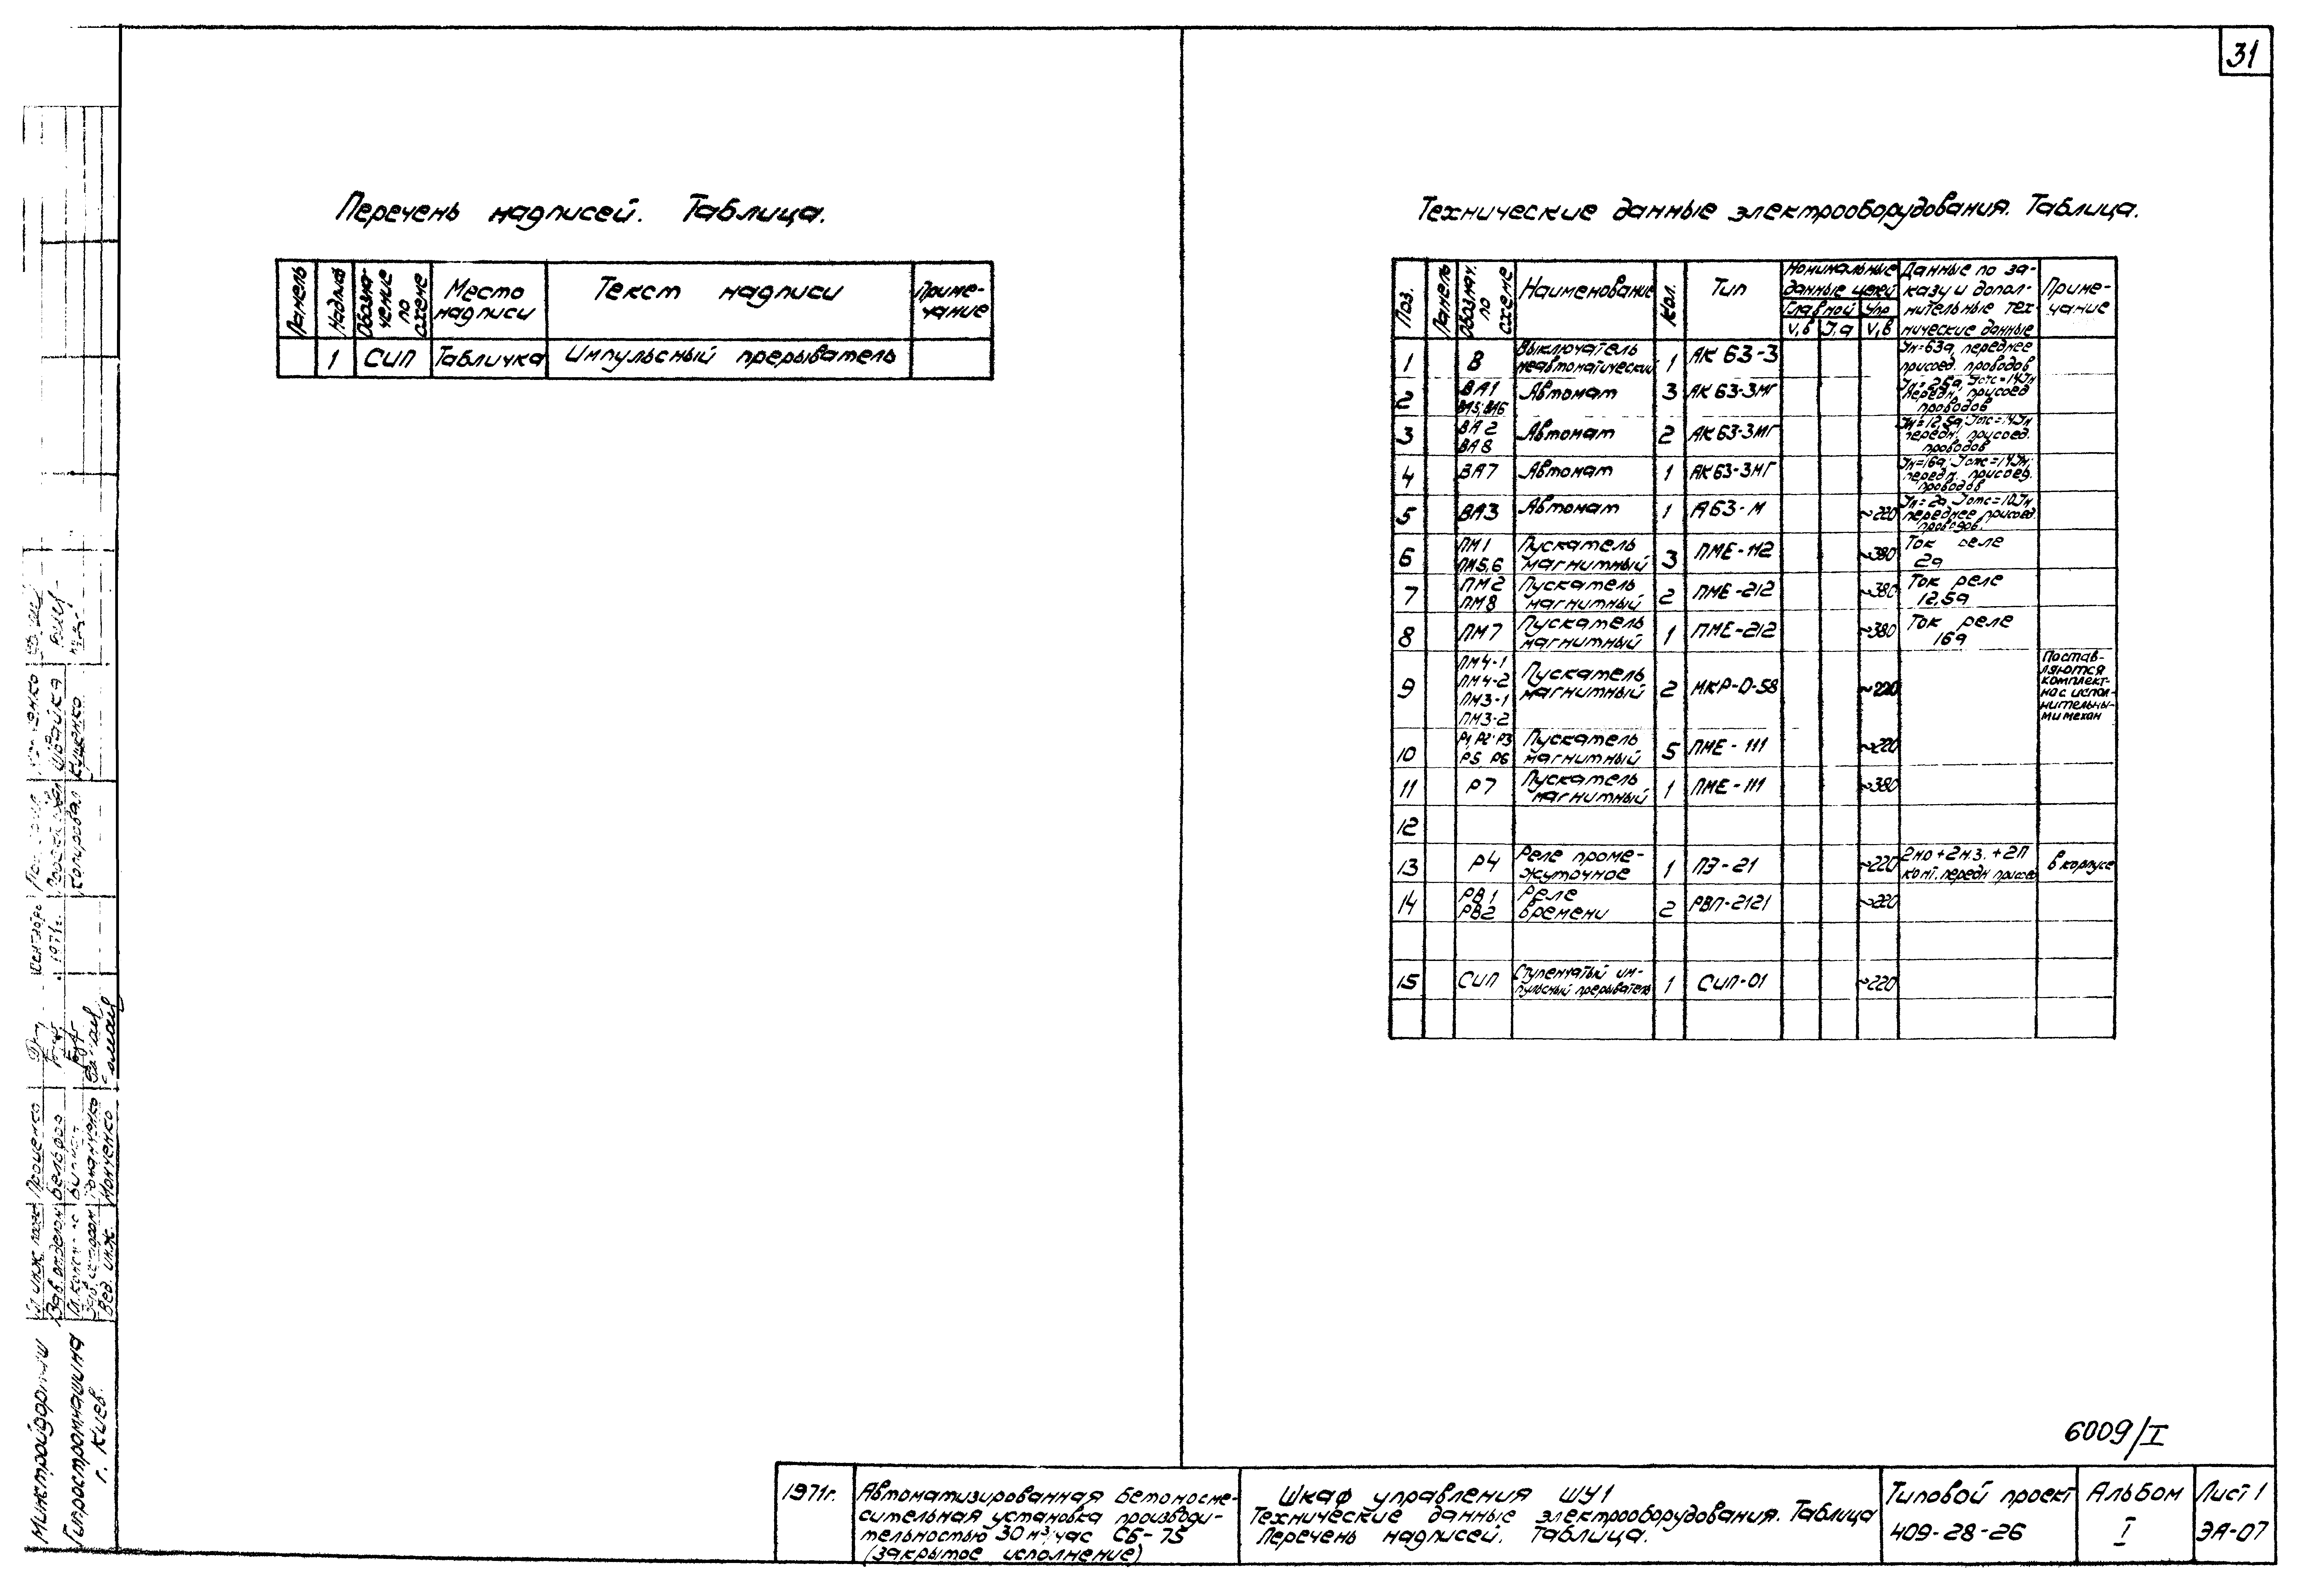 31
Перечень надписей. Таблица.
Панель
Надпись
Обозна-
чение
по
схеме
Место
надписи
Текст надписи
Приме-
чание
1 СИП Табличка Импульсный прерыватель
Технические данные электрооборудования. Таблица.
Поз.
Панель
Обознач.
по
схеме
Наименование
Кол.
Тип
Номинальные
данные цепей
Главной Упр
V,в I,а V,в
Данные по за-
казу и допол-
нительные тех-
нические данные
Приме-
чание
1 В Выключатель
неавтоматический 1 АК 63-3 Iн=63а, переднее
присоед. проводов
2 ВА1
ВА5; ВА6 Автомат 3 АК 63-3МГ Iн=25а, Iотс=14Iн
передн. присоед
проводов
3 ВА2
ВА8 Автомат 2 АК 63-3МГ Iн=12,5а; Iотс=14Iн
передн. присоед.
проводов
4 ВА7 Автомат 1 АК 63-3МГ Iн=16а; Iотс=14Iн;
передн. присоед.
проводов
5 ВА3 Автомат 1 А63-М ~220 Iн=2а Iотс=10Iн
переднее присоед
проводов.
6 ПМ1
ПМ5,6 Пускатель
магнитный 3 ПМЕ-112 ~380 Ток реле
2а
7 ПМ2
ПМ8 Пускатель
магнитный 2 ПМЕ-212 ~380 Ток реле
12,5а
8 ПМ7 Пускатель
магнитный 1 ПМЕ-212 ~380 Ток реле
16а
9 ПМ4-1
ПМ4-2
ПМ3-1
ПМ3-2 Пускатель
магнитный 2 МКР-О-58 ~220 Постав-
ляются
комплект-
но с испол-
нительны-
ми механ
10 Р1, Р2; Р3
Р5, Р6 Пускатель
магнитный 5 ПМЕ-111 ~220
11 Р7 Пускатель
магнитный 1 ПМЕ-111 ~380
12
13 Р4 Реле проме-
жуточное 1 ПЭ-21 ~220 2но+2н.з.+2П
конт. передн присое в корпусе
14 РВ1
РВ2 Реле
времени 2 РВП-2121 ~220
15 СИП Ступенчатый им-
пульсный прерыватель 1 СИП-01 ~220
6009/I
1971г.
Автоматизированная бетоносме-
сительная установка производи-
тельностью 30м³/час СБ-75
(закрытое исполнение)
Шкаф управления ШУ1
Технические данные электрооборудования. Таблица
Перечень надписей. Таблица.
Типовой проект
409-28-26
Альбом
I
Лист 1
ЭА-07
Минстройдормаш
Гипростроммашина
г. Киев.
Гл инж.
Проценко
Зав. отделом
Бельфор
Романченко
Вед. инж.
Мончемко
сентябрь
1971г.
Швайка
Копировал
Куценко